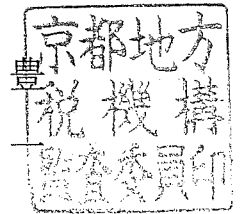 京都地方
税機構
監査委員印
豊一